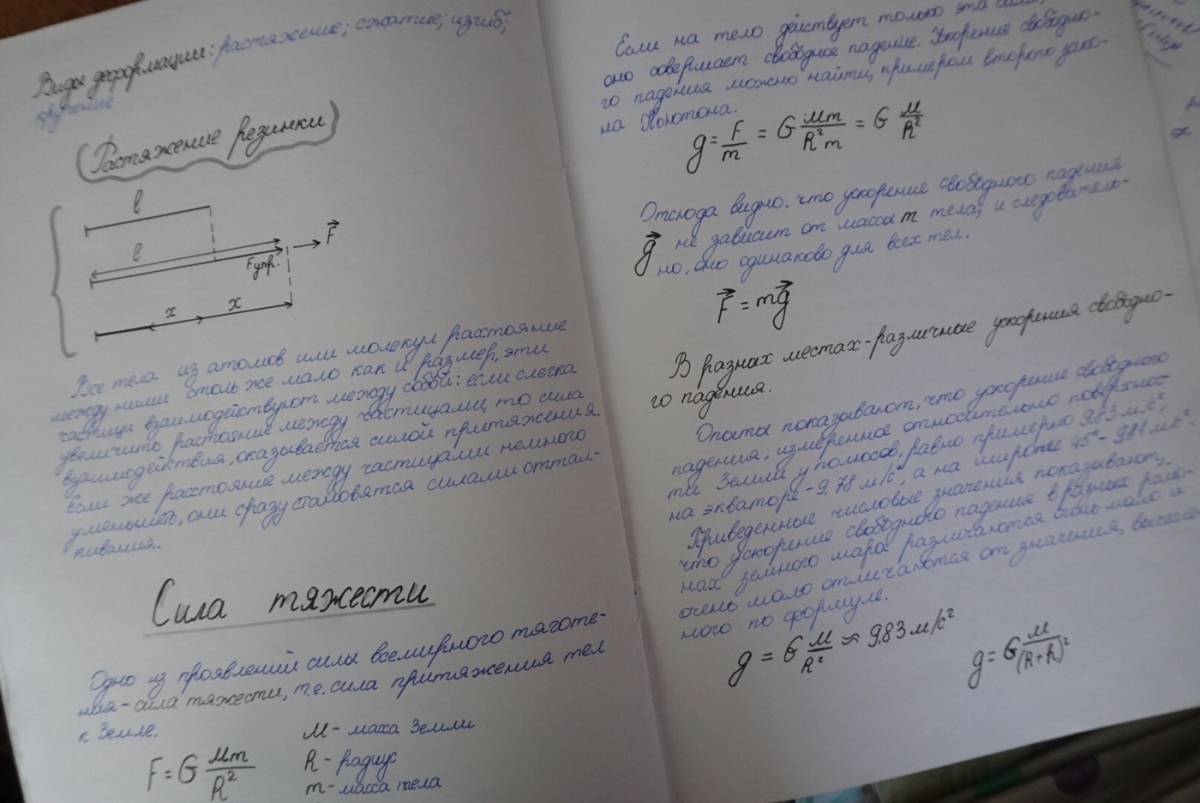 Виды деформации: растяжение; сжатие; изгиб;
кручение
Растяжение резинки
l
l
F
Fупр.
x x
Все тела из атомов или молекул расстояние
между ними столь же мало как и размер, эти
частицы взаимодействуют между собой: если слегка
увеличить растояние между частицами, то сила
взаимодействия, оказывается силой притяжения.
Если же расстояние между частицами немного
уменьшить, они сразу становятся силами оттал-
кивания.
Сила тяжести
Одно из проявлений силы всемирного тяготе-
ния - сила тяжести, т.е. сила притяжения тел
к Земле.
F = G Mm/R²
M - масса Земли
R - радиус
m - масса тела
Если на тело действует только эта сила,
оно совершает свободное падение. Ускорение свободно-
го падения можно найти, примером второго зако-
на Ньютона.
g = F/m = G Mm/R²m = G M/R²
Отсюда видно, что ускорение свободного падения
g не зависит от массы m тела, и следователь-
но, оно одинаково для всех тел.
F = mg
В разных местах - различные ускорения свободно-
го падения.
Опыты показывают, что ускорение свободного
падения, измеренное относительно поверхнос
ти Земли у полюсов, равно примерно 9,83 м/с²,
на экваторе - 9,78 м/с², а на широте 45° - 9,81 м/с².
Приведенные числовые значения показывают,
что ускорение свободного падения в разных райо-
нах земного шара различаются очень мало и
очень мало отличаются от значения, вычислен
ного по формуле.
g = G M/R² ≈ 9,83 м/с²
g = G M/(R+h)²